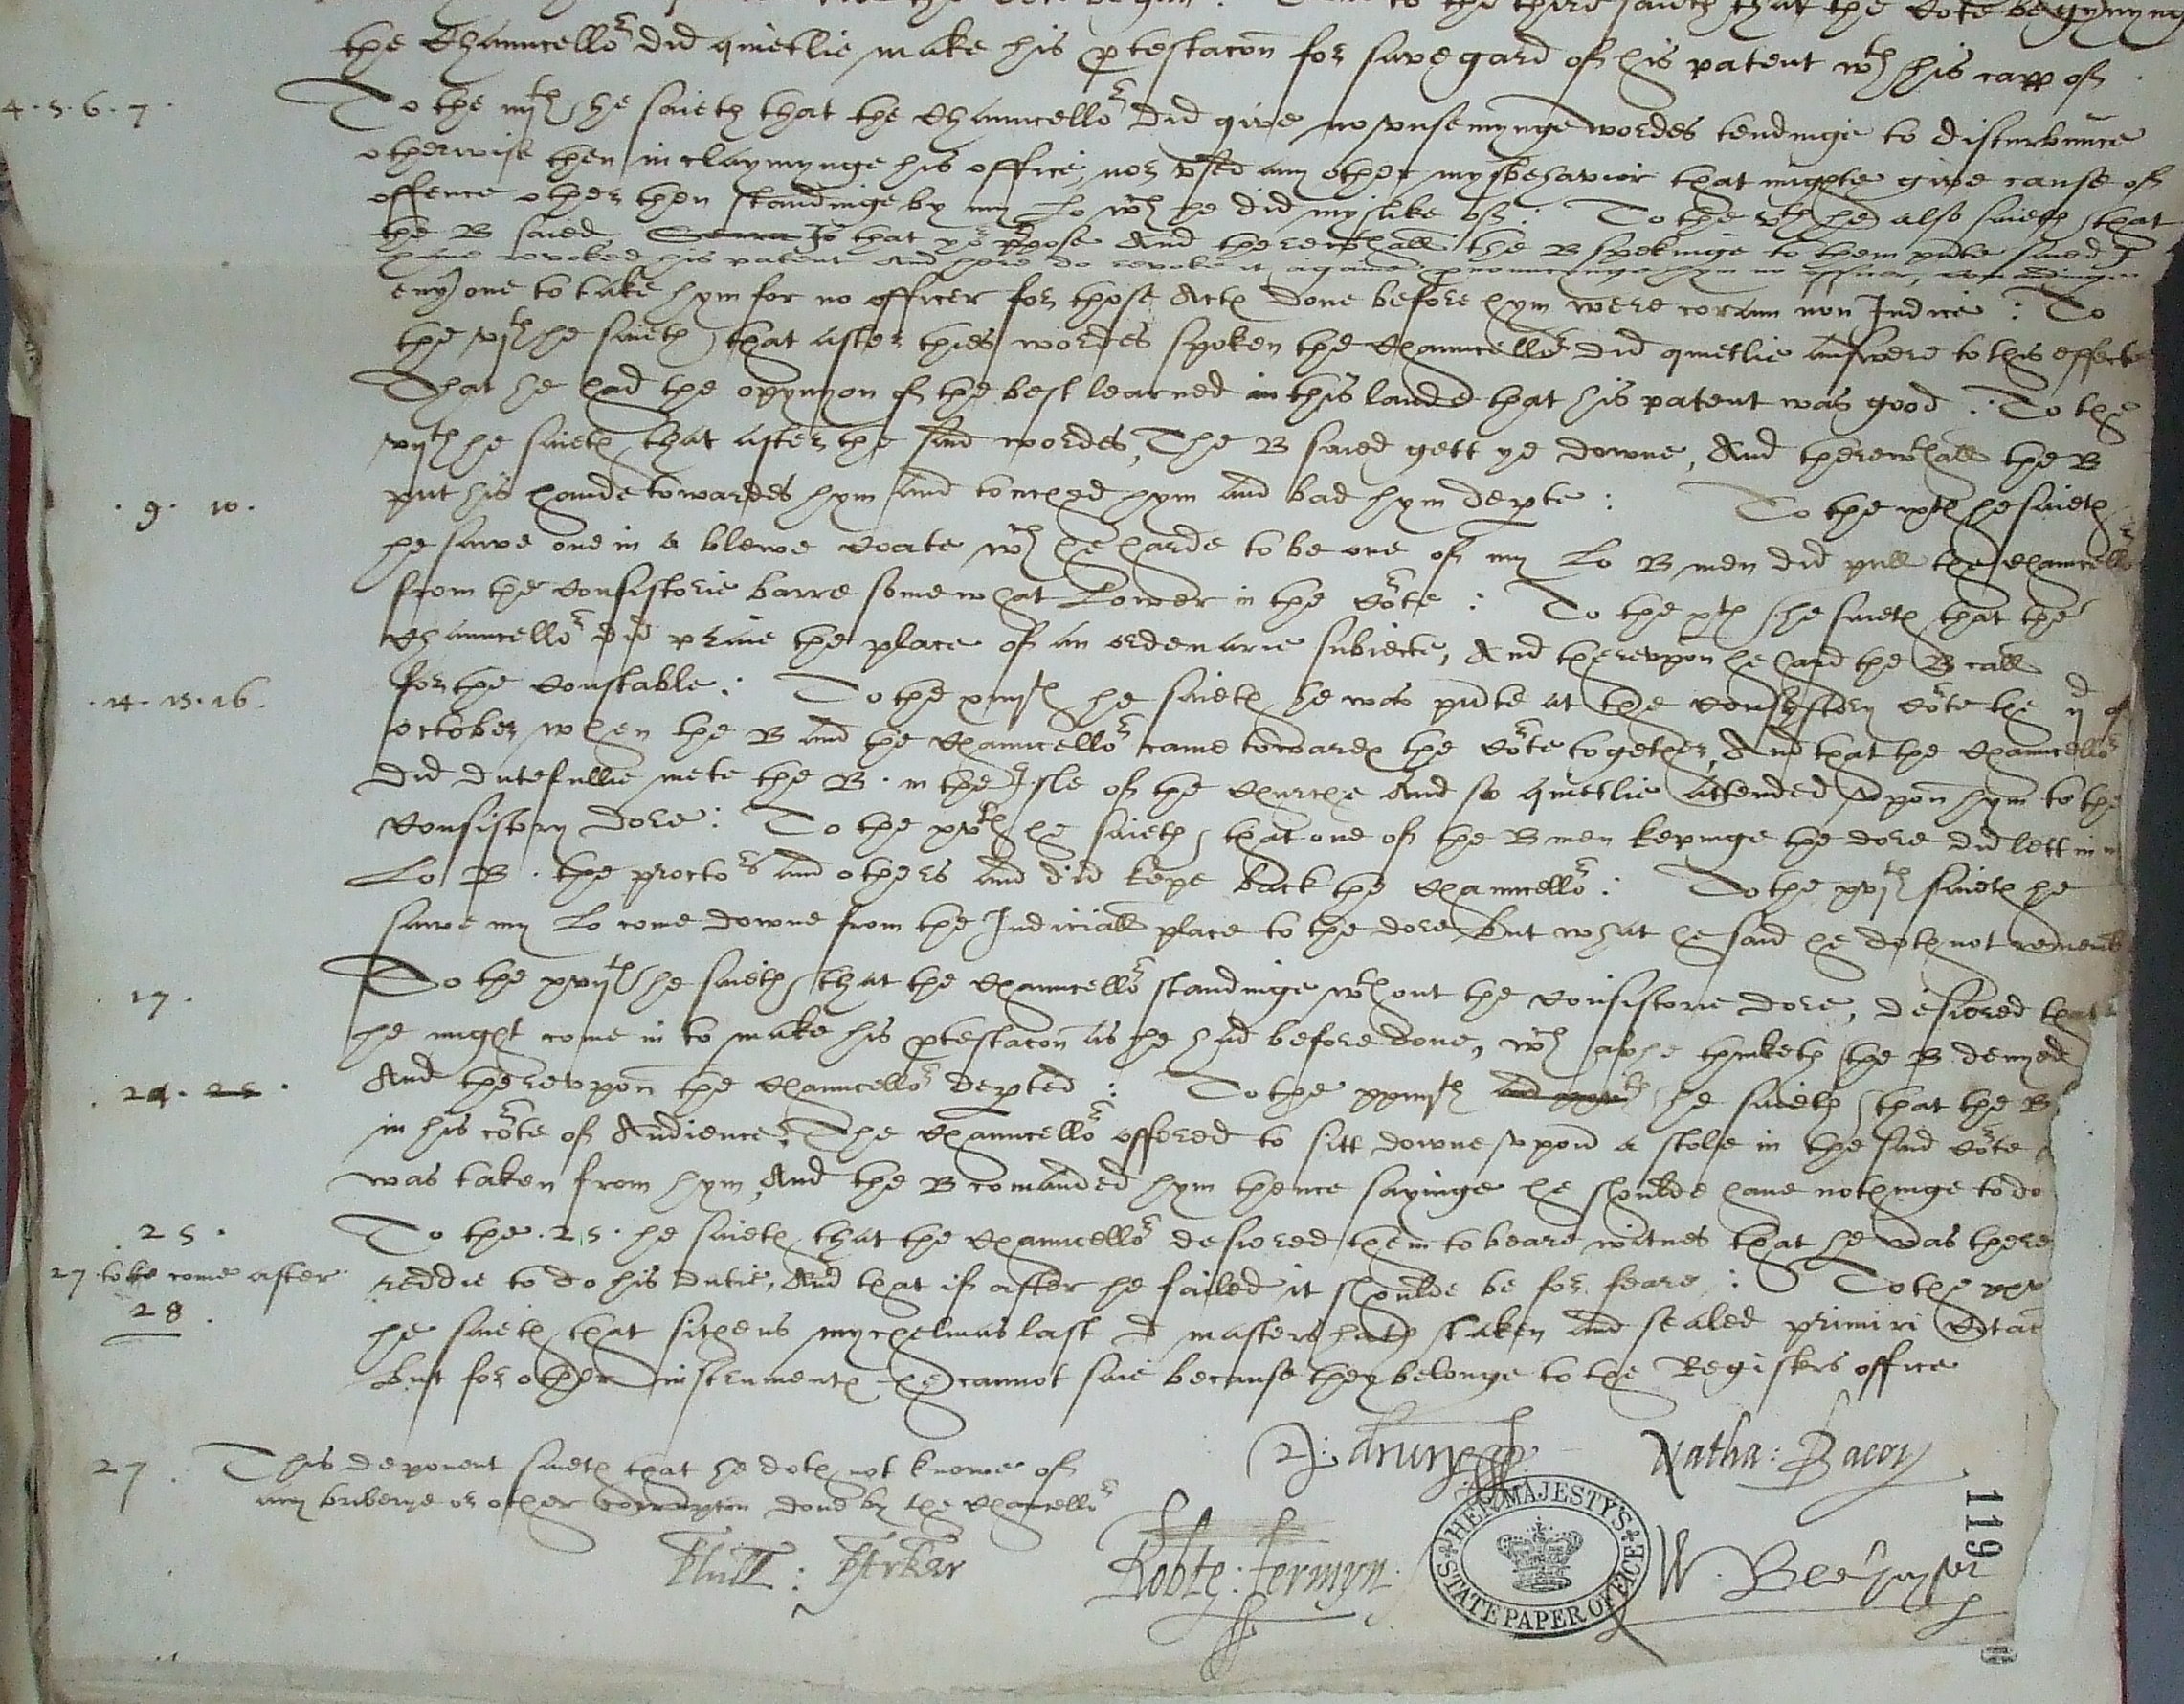 to the third saieth that the Cote begynnyng
the Chauncello^r did quietlie make his ptestacon for savegard of his patent w^th his capp of
4 . 5 . 6 . 7 . To the iiij^th he saieth that the Chauncello^r did give no unsemynge wordes tendinge to disturbunce
otherwise then in claymynge his office, nor used any other mysbehavior that mighte give cause of
offence other then standinge by my Lo w^ch he did myslike of : To the v^th he also saieth that
the B saied to that purpose And therewthall the B spekinge to them pnte saied I
have revoked his patent And here do revoke it againe pnouncinge hym no officer,
eny one to take hym for no officer for those Actes done before hym were coram non Iudice : To
the vj^th he saieth that after thies wordes spoken the Chauncello^r did quietlie answere to this effecte
That he had the opynyon of the best learned in this lande that his patent was good . To the
vij^th he saieth that after the said wordes, The B saied gett ye downe, And therewthall the B
put his hande towardes hym and touched hym and bad hym depte :  To the ix^th he saieth
. 9 . 10 . he sawe one in a blewe Coate w^ch he harde to be one of my Lo B men did pull the Chauncello^r
from the Consistorie barre somewhat Lower in the Cote : To the x^th he saieth that the
Chauncello^r did praie the place of an ordenarie subiecte, And therevpon he hard the B call
. 14 . 15 . 16 . for the Constable : To the xiiij^th he saieth he was pnte at the Consystory Cote the ij^d of
October, when the B and the Chauncello^r came towardes the Cote together, And that the Chauncello^r
did dutefullie mete the B . in the Isle of the Churche And so quietlie attended vpon hym to the
Consistory dore : To the xv^th he saieth that one of the B men kepinge the dore did lett in
Lo B . the procto^rs and others and did kepe back the Chauncello^r : To the xvj^th saieth he
sawe my Lo come downe from the Iudiciall place to the dore but what he said he doth not rememb
. 17 . To the xvij^th he saieth that the Chauncello^r standinge w^thout the Consistorie dore, desiered that
he might come in to make his ptestacon as he had before done, w^ch as he thinketh the B denyed
. 24 . 25 . And therevpon the Chauncello^r depted : To the xxiiij^th and he saieth that the B
in his cote of Audience, The Chauncello^r offered to sitt downe vpon a stole in the said Cote
was taken from hym, And the B comanded hym thence sayinge he shoulde have nothinge to do
. 25 . To the . 25 . he saieth that the Chauncello^r desiered them to beare witnes that he was there
27 to be come after reddie to do his dutie, And that if after he failed it shoulde be for feare : To the
28 . he saieth that sithens mychelmas last masters hath taken and sealed
But for other instrumentes he cannot saie because they belonge to the Registers office
27 . This deponent saieth that he doth not knowe of
any briberye or other corruption done by the Chauncello^r
D: drury
Natha: Bacon
Robte: Iermyn
W. Blenhayset
119
HER MAJESTY'S STATE PAPER OFFICE